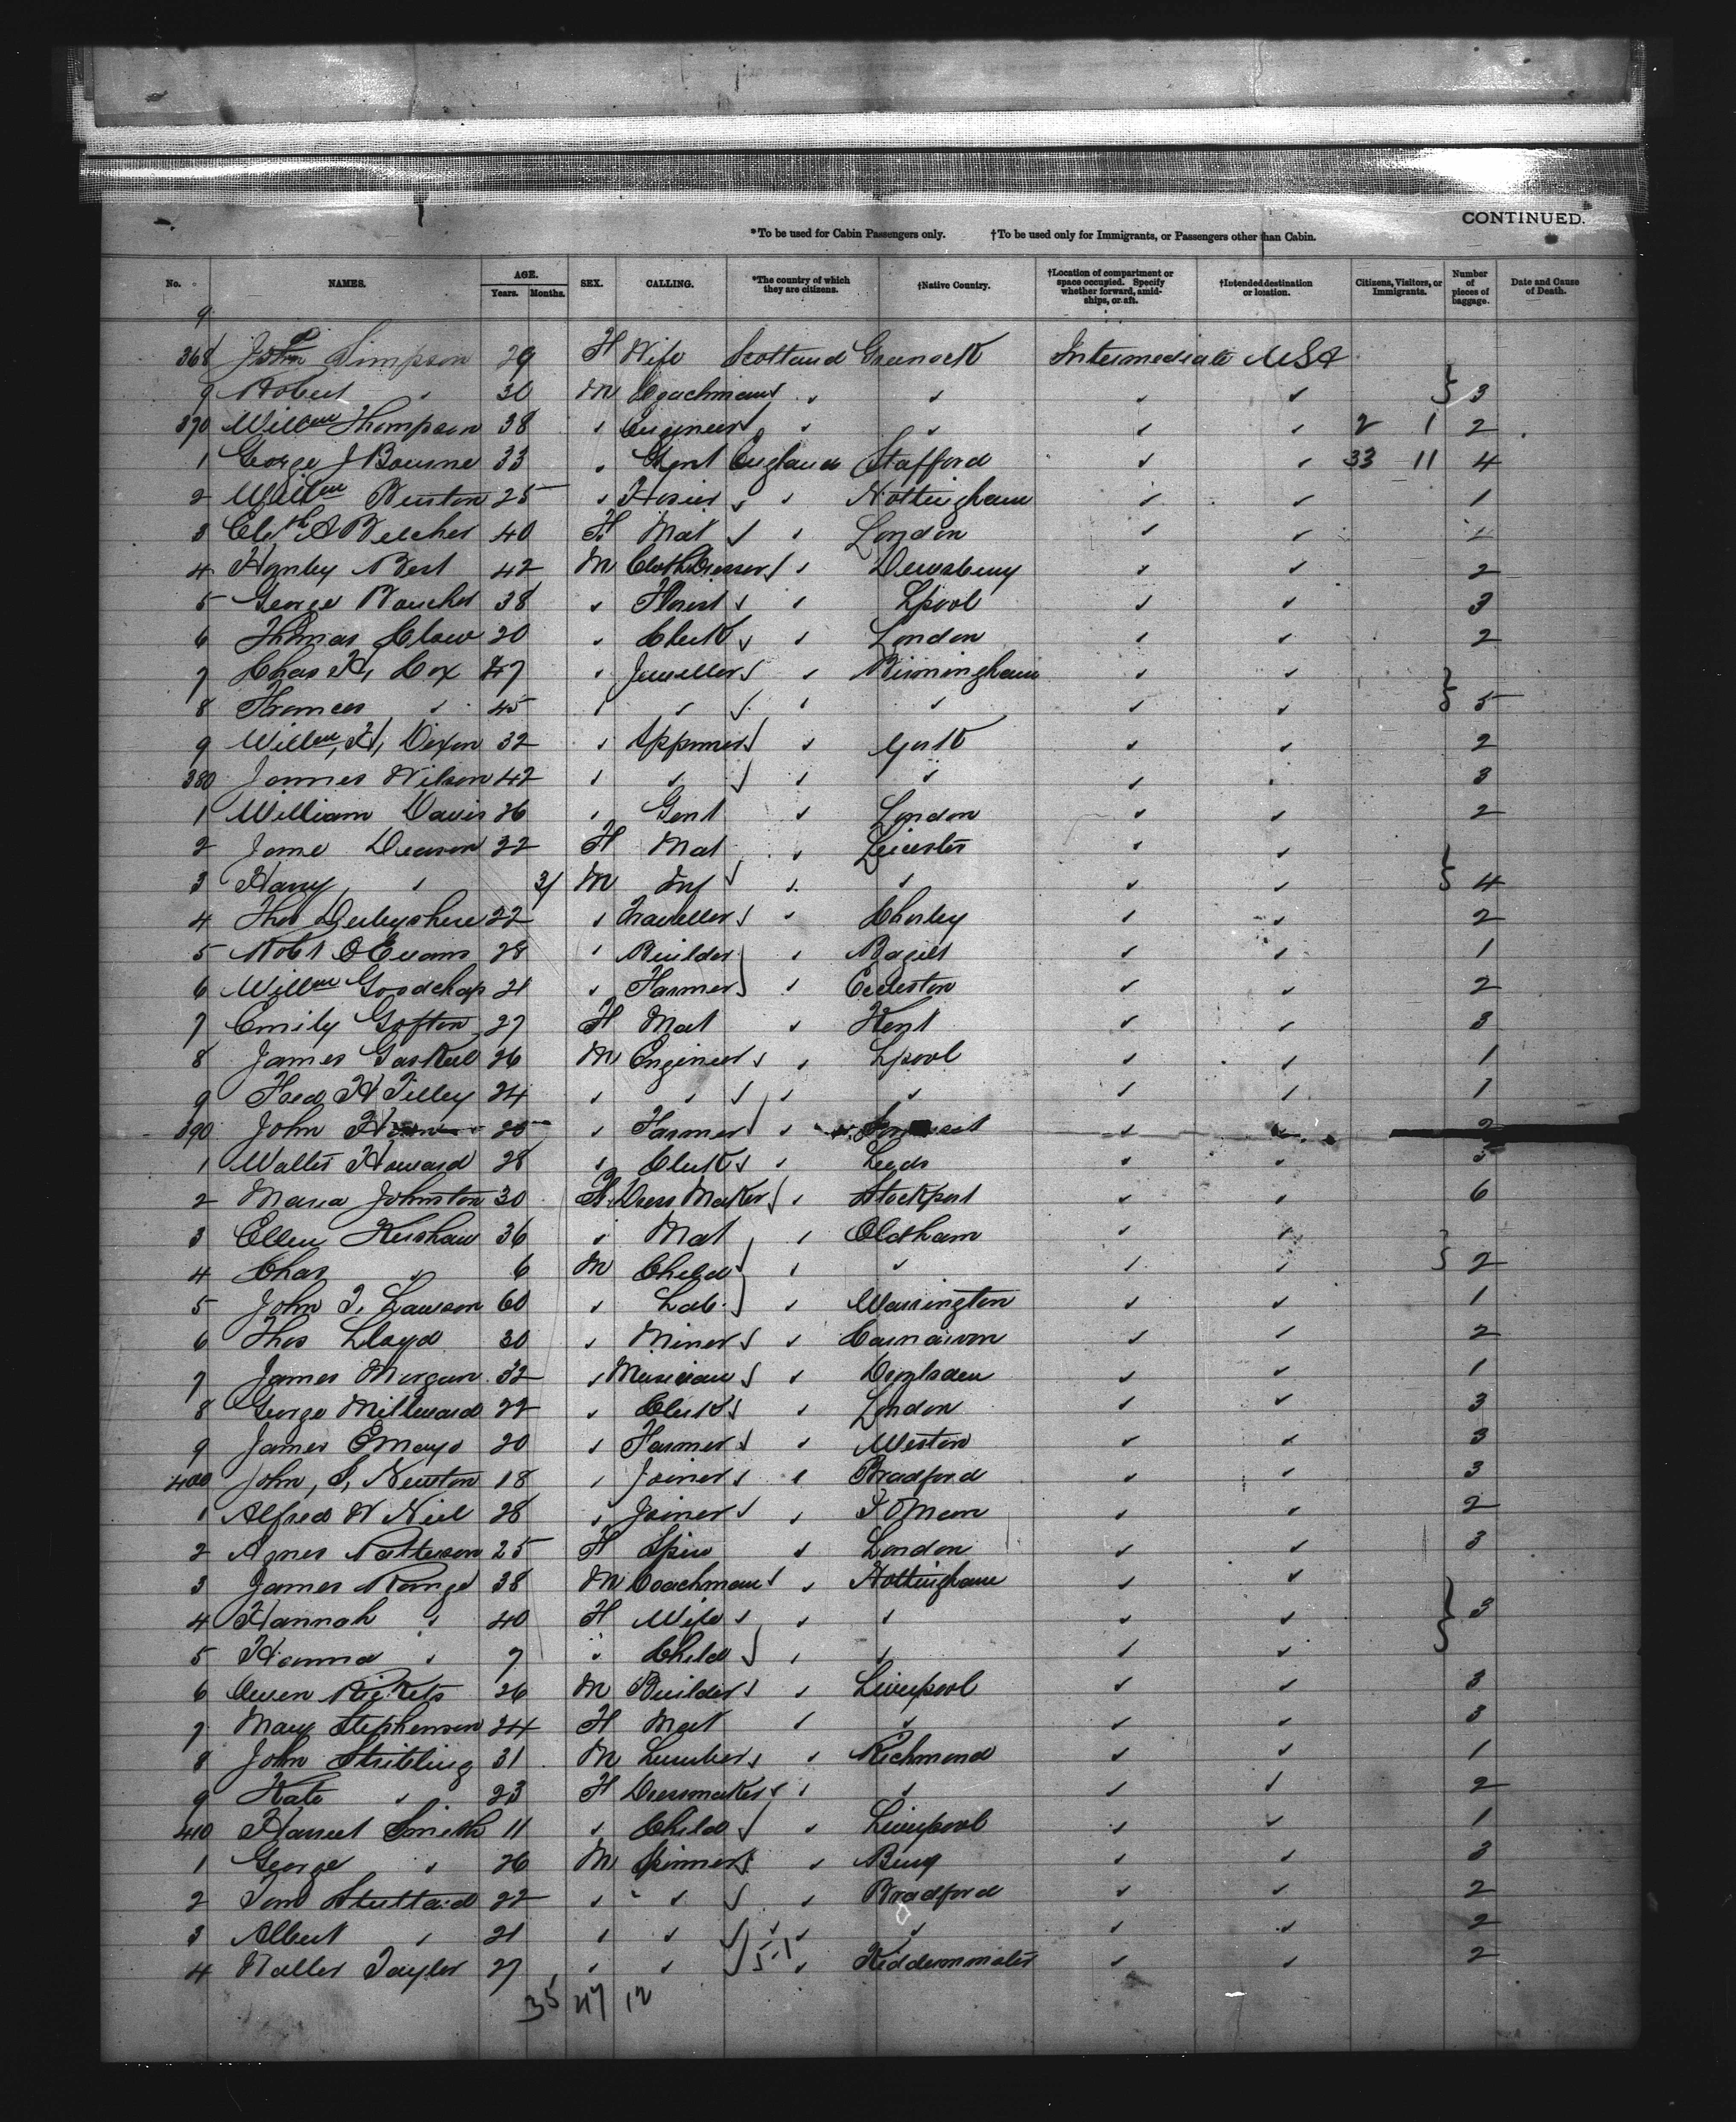 CONTINUED.
*To be used for Cabin Passengers only. †To be used only for Immigrants, or Passengers other than Cabin.
No. NAMES. AGE. Years. Months. SEX. CALLING. *The country of which they are citizens. †Native Country. †Location of compartment or space occupied. Specify whether forward, amidships, or aft. †Intended destination or location. Citizens, Visitors, or Immigrants. Number of pieces of baggage. Date and Cause of Death.
9
368 John Simpson 29 F Wife Scotland Greenock Intermediate USA
9 Robert " 30 M Coachman " " " " 3
370 Willm Thompson 38 " Engineer " " " " 2 1 2
1 George J Bourne 33 " Agent England Stafford " " 33 11 4
2 Willm Burton 25 " Hosier " Nottingham " " 1
3 Elizth A Belcher 40 F Mat " London " "
4 Hanley Best 42 M Cloth Dresser " Dewsbury " " 2
5 George Boucher 38 " Florist " Lpool " " 3
6 Thomas Clow 20 " Clerk " London " " 2
7 Chas H, Cox 47 " Jeweller " Birmingham " "
8 Frances " 45 " " " " " " 5
9 Willm, H, Dixon 32 " " York " " 2
380 James Wilson 42 " " " " " " 3
1 William Davis 26 " Gent " London " " 2
2 Jane Deacon 22 F Mat " Leicester " "
3 Harry " 3/ M Inf " " " " 4
4 Thos Derbyshire 22 " Traveller " Chorley " " 2
5 Robt O Evans 28 " Builder " Bagilt " " 1
6 Willm Goodchap 21 " Farmer " Eccleston " " 2
7 Emily Gofton 27 F Mat " Kent " " 3
8 James Gaskell 26 M Engineer " Lpool " " 1
9 Fred H Tilley 24 " " " " " " 1
390 John 25 " Farmer " " " 2
1 Walter Howard 28 " Clerk " Leeds " " 3
2 Maria Johnston 30 F Dress Maker " Stockport " " 6
3 Ellen Kershaw 36 " Mat " Oldham " "
4 Chas " 6 M Child " " " " 2
5 John T. Lawson 60 " Lab. " Warrington " " 1
6 Thos Lloyd 30 " Miner " Carnarvon " " 2
7 James Morgan 32 " Musician " " " 1
8 George Millward 22 " Clerk " London " " 3
9 James E Mays 20 " Farmer " Weston " " 3
400 John, S, Newton 18 " Joiner " Bradford " " 3
1 Alfred W Neil 28 " Joiner " I O Man " " 2
2 Agnes Patterson 25 F Spin " London " " 3
3 James Range 38 M Coachman " Nottingham " "
4 Hannah " 40 F Wife " " " " 3
5 Hanna " 7 " Child " " " "
6 Owen Rickets 26 M Builder " Liverpool " " 3
7 Mary Stephenson 24 F Mat " " " " 3
8 John Stribling 31 M " Richmond " " 1
9 Kate " 23 F Dressmaker " " " " 2
410 Harriet Smith 11 " Child " Liverpool " " 1
1 George " 26 M Spinner " Bury " " 3
2 Tom Stuttard 22 " " " Bradford " " 2
3 Albert " 21 " " " " " " 2
4 Walter Taylor 27 " " 51 " Kidderminster " " 2
35 47 12